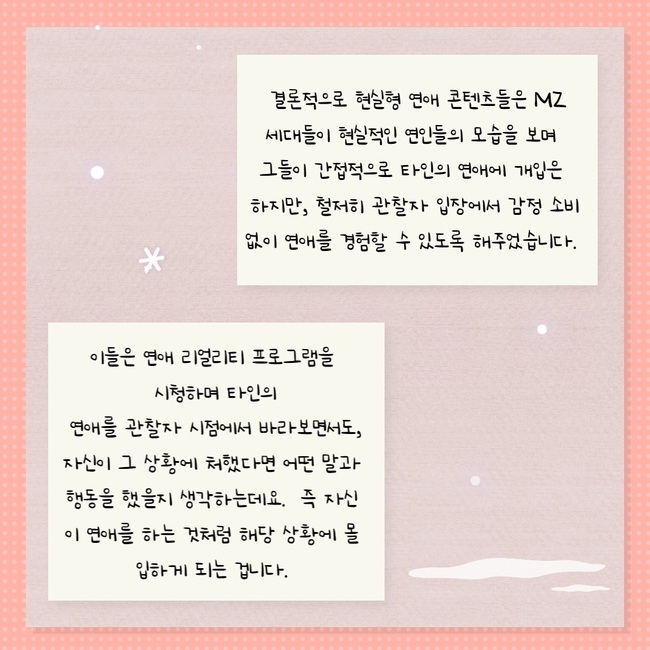 결론적으로 현실형 연애 콘텐츠들은 MZ
세대들이 현실적인 연인들의 모습을 보며
그들이 간접적으로 타인의 연애에 개입은
하지만, 철저히 관찰자 입장에서 감정 소비
없이 연애를 경험할 수 있도록 해주었습니다.
이들은 연애 리얼리티 프로그램을
시청하며 타인의
연애를 관찰자 시점에서 바라보면서도,
자신이 그 상황에 처했다면 어떤 말과
행동을 했을지 생각하는데요. 즉 자신
이 연애를 하는 것처럼 해당 상황에 몰
입하게 되는 겁니다.